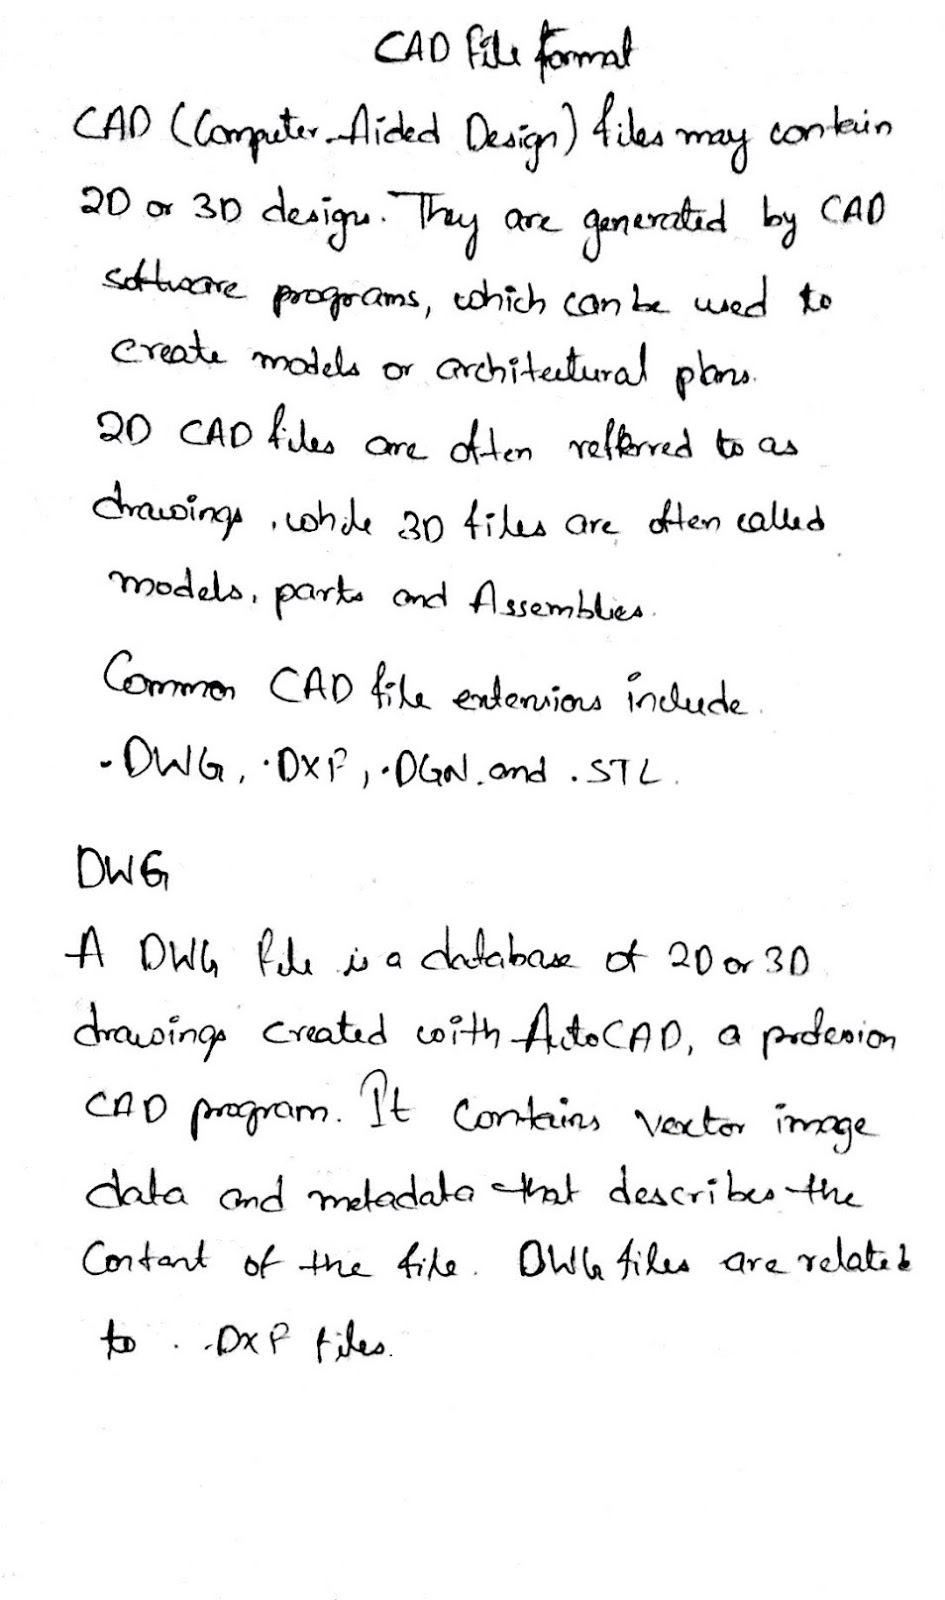 CAD file format
CAD (Computer-Aided Design) files may contain
2D or 3D design. They are generated by CAD
software programs, which can be used to
create models or architectural plans.
2D CAD files are often refferred to as
drawings, while 3D files are often called
models, parts and Assemblies.
Common CAD file extensions include.
.DWG, .DXF, .DGN. and .STL.
DWG
A DWG file is a database of 2D or 3D
drawings created with AutoCAD, a profession
CAD program. It contains vector image
data and metadata that describes the
content of the file. DWG files are related
to . .DXF files.